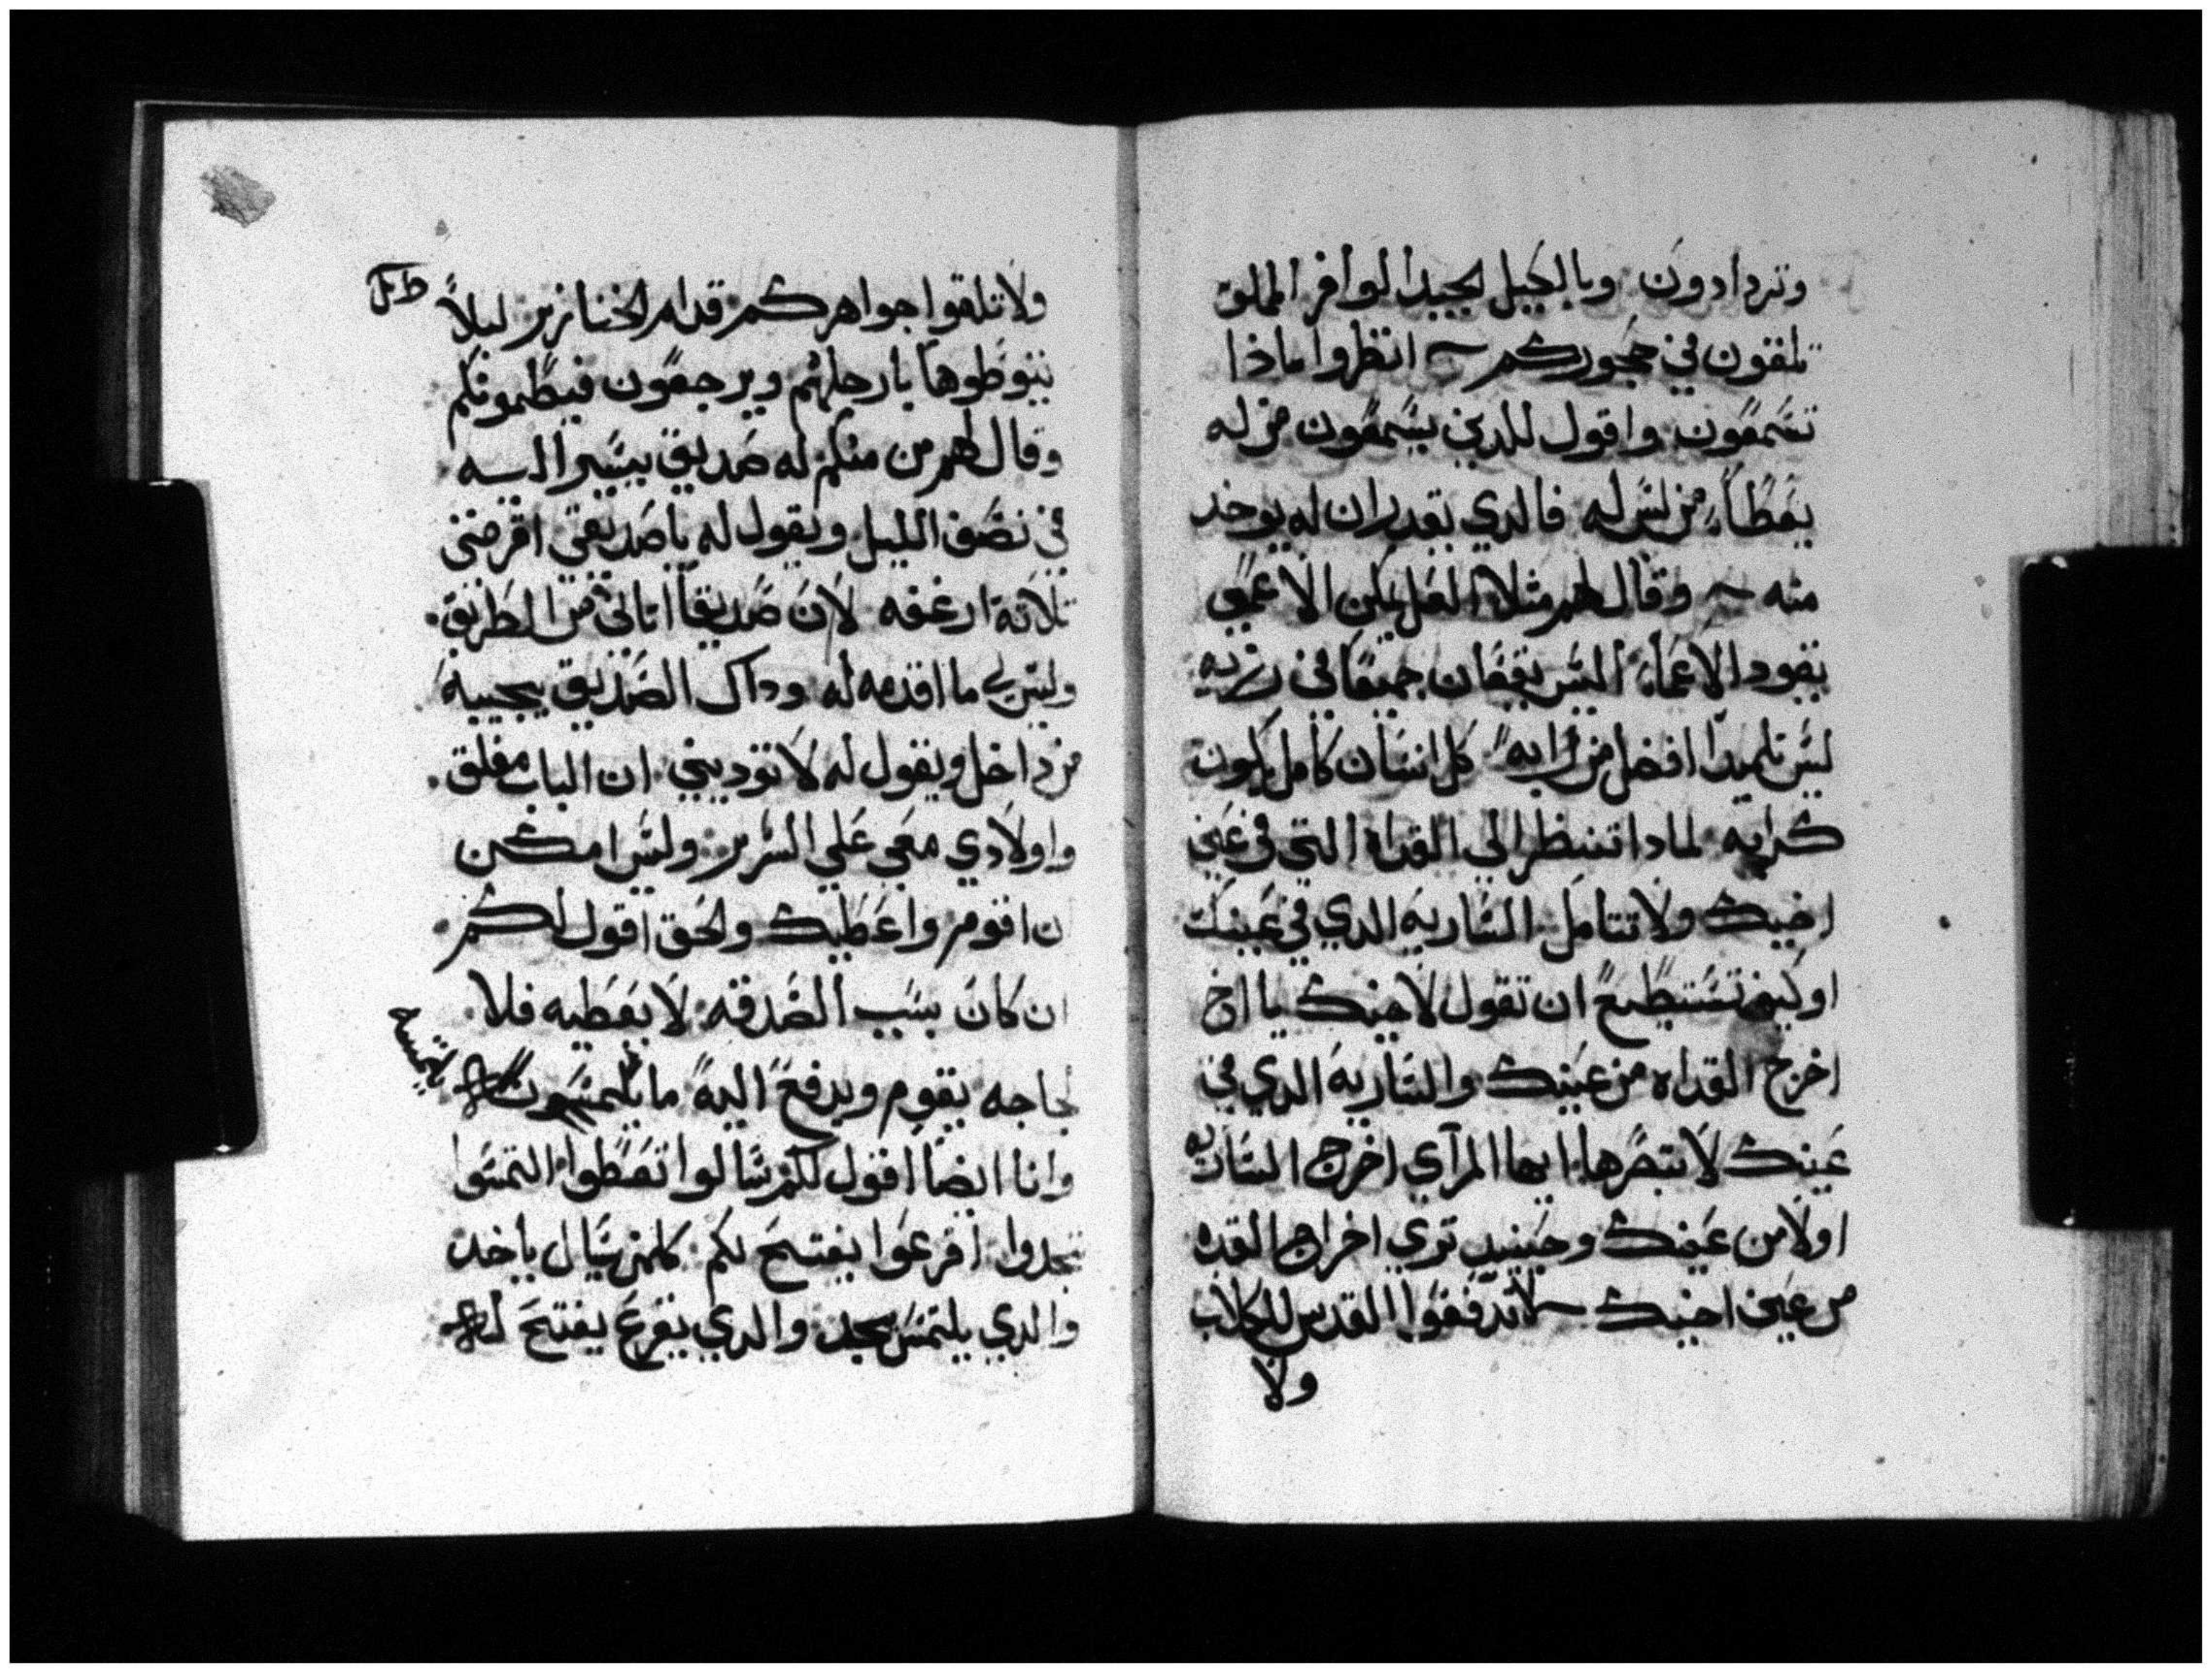 وتزدادون وبالكيل الجيد الوافر المملو
تلقون في حجوركم انظروا ماذا
تسمعون واقول للدين يسمعون من له
يعطاء من ليس له فالدي يقدر ان له يوخد
منه وقال لهم مثلا العل يمكن الاعمي
يقود الاعماء اليس يقعان جميعا في زبيه
ليس تلميدا افضل من رابه كل انسان كامل يكون
كرابه لمادا تنظر الي القداه التي في عين
اخيك ولا تتامل الساريه الدي في عينك
او كيف تستطيع ان تقول لاخيك يا اخ
اخرج القداه من عينك والساريه الدي في
عينك لا تبصرها ايها المرآي اخرج الساريه
اولا من عينك وحينيد تري اخراج القده
من عين اخيك لا تدفعوا القدس للكلاب
ولا
ولا تلقوا جواهركم قدام الخنازير ليلا
يتوطوها بارجلهم ويرجعون فيطمونكم
وقال لهم من منكم له صديق يسير اليه
في نصف الليل ويقول له يا صديقي اقرضني
تلاتة ارغفه لان صديقا اتاني من الطريق
وليس لي ما اقدمه له وداك الصديق يجيبه
من داخل ويقول له لا توديني ان الباب مغلق
واولادي معي علي السرير وليس امكن
ان اقوم واعطيك والحق اقول لكم
ان كان بسبب الصدقه لا يعطيه فلا
لجاجه يقوم ويدفع اليه ما يلتمسون
وانا ايضا اقول لكم سالوا تعطوا التمسوا
تجدوا اقرعوا يفتح لكم كلمن سال ياخد
والدي يلتمس يجد والدي يقرع يفتح له